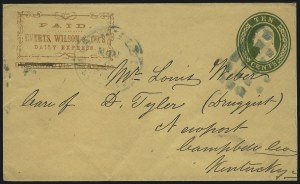 PAID
EVERTS, WILSON & CO'S
DAILY EXPRESS
TEN
CENTS
Mr. Louis Weber
Care of D. Tyler (Druggist)
Newport
Campbell Co
Kentucky